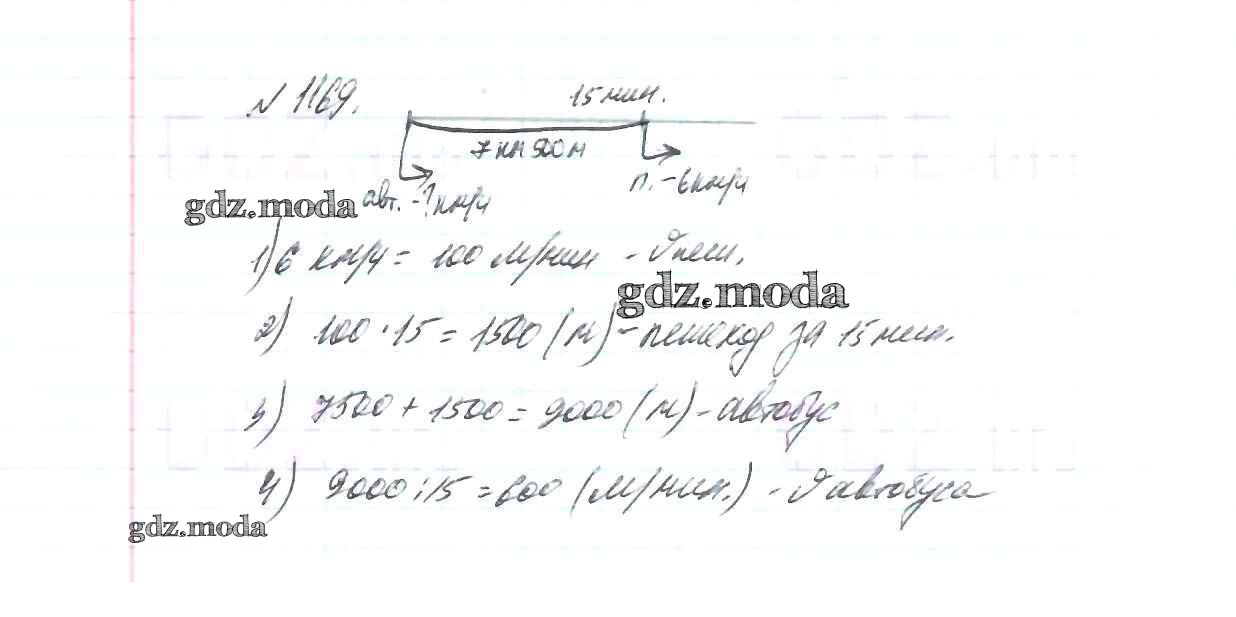 № 1169.
15 мин.
7 км 500 м
п. - 6 км/ч
gdz.moda
авт. - ? км/ч
1) 6 км/ч = 100 м/мин - υ пеш.
gdz.moda
2) 100 · 15 = 1500 (м) - пешеход за 15 мин.
3) 7500 + 1500 = 9000 (м) - автобус
4) 9000 : 15 = 600 (м/мин.) - υ автобуса
gdz.moda